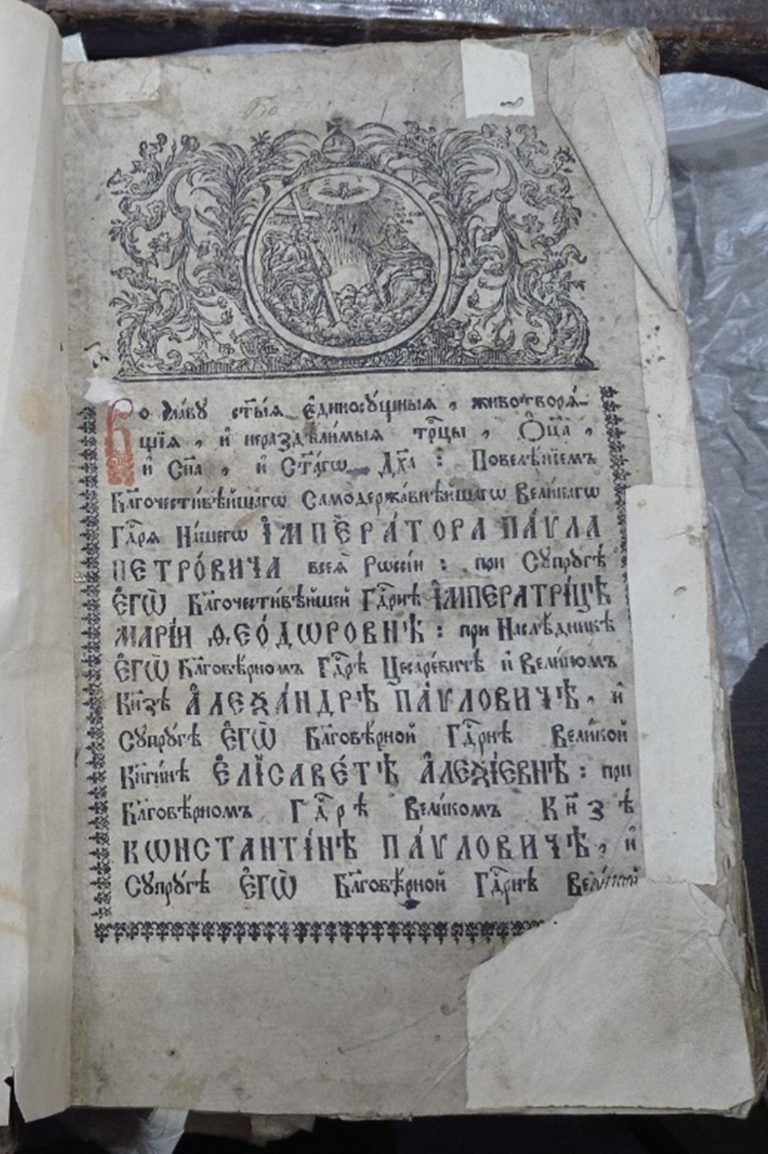 Бо
Во сла́ву ст҃ы́ѧ є҆диносꙋ́щныѧ, животворѧ́-
щїѧ, и҆ нераздѣли́мыѧ трⷪ҇цы, Ѻ҆ц҃а̀,
и҆ Сн҃а, и҆ Ст҃а́гѡ Дх҃а: Повелѣ́нїемъ
Бл҃гочести́вѣйшагѡ Самодержа́внѣйшагѡ Вели́кагѡ
Гдⷭ҇рѧ На́шегѡ І҆МПЕРА́ТОРА ПА́ѴЛА
ПЕТРО́ВИЧА всеѧ̀ Рѡссі́и: при Сꙋпрꙋ́гѣ
Є҆ГѠ̀ Бл҃гочести́вѣйшей Гдⷭ҇рнѣ І҆МПЕРАТРИ́ЦѢ
МАРІ́И ѲЕО́ДѠРОВНѢ: при Наслѣ́дникѣ
Є҆ГѠ̀ Бл҃говѣ́рномъ Гдⷭ҇рѣ Цесаре́вичѣ и҆ Вели́комъ
Кн҃зѣ А҆ЛЕѮА́НДРѢ ПА́ѴЛОВИЧѢ, и҆
Сꙋпрꙋ́гѣ Є҆ГѠ̀ Бл҃говѣ́рной Гдⷭ҇рнѣ Вели́кой
Кн҃ги́нѣ Є҆ЛІСАВЕ́ТѢ А҆ЛЕѮІ́ЕВНѢ: при
Бл҃говѣ́рномъ Гдⷭ҇рѣ Вели́комъ Кн҃зѣ
КѠНСТАНТІ́НѢ ПА́ѴЛОВИЧѢ, и҆
Сꙋпрꙋ́гѣ Є҆ГѠ̀ Бл҃говѣ́рной Гдⷭ҇рнѣ Вели́кой